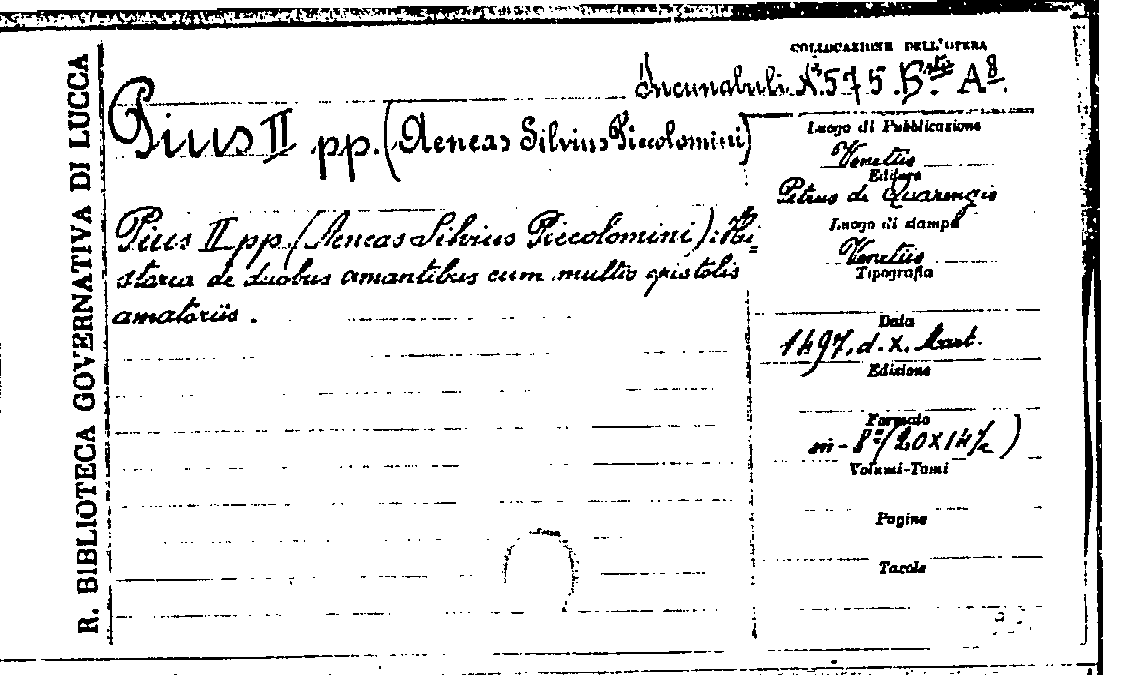 R. BIBLIOTECA GOVERNATIVA DI LUCCA
COLLOCAZIONE DELL'OPERA
Incunabuli. N.º 575. B.sta A 8.
Pius II pp. (Aeneas Silvius Piccolomini)
Pius II pp. (Aeneas Silvius Piccolomini): Hi=
storia de duobus amantibus cum multis epistolis
amatoriis.
Luogo di Pubblicazione
Venetiis
Editore
Petrus de Quarengis
Luogo di stampa
Venetiis
Tipografia
Data
1497, d. X. Mart.
Edizione
Formato
in-8º (20X14½)
Volumi-Tomi
Pagine
Tavole